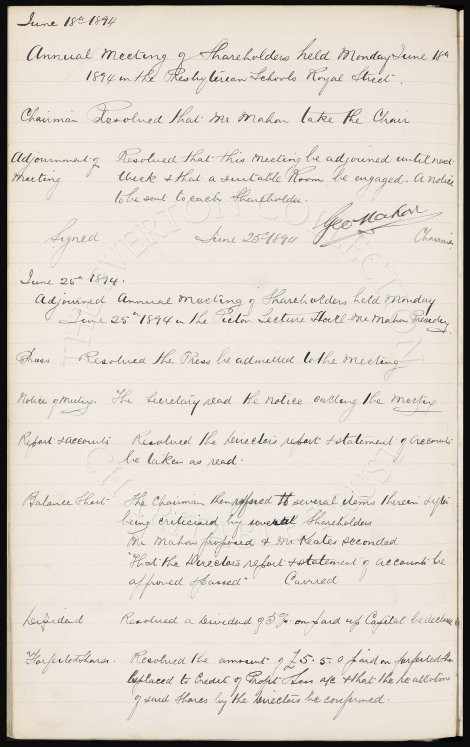 June 18th 1894
Annual Meeting of Shareholders held Monday June 18th
1894 in the Presbyterian Schools Royal Street.
Chairman Resolved that Mr Mahon take the Chair
Adjournment of Resolved that this Meeting be adjourned until next
Meeting Week & that a suitable Room be engaged. A notice
to be sent to each Shareholder.
Signed June 25th 1894 Geo Mahon Chairman
June 25th 1894.
Adjourned Annual Meeting of Shareholders held Monday
June 25th 1894 in the Picton Lecture Hall. Mr Mahon Presiding.
Press Resolved the Press be admitted to the Meeting
Notice of Meeting. The Secretary read the notice calling the Meeting
Report & accounts Resolved the Directors report & statement of accounts
be taken as read.
Balance Sheet The Chairman then referred to several items therein & after
being criticised by several Shareholders
Mr Mahon proposed & Mr Keates seconded
"That the Directors report & statement of accounts be
approved & passed" Carried
Dividend Resolved a Dividend of 5% on paid up Capital be declared
Forfeited Shares. Resolved the amount of £5.5.0 paid on forfeited
be placed to Credit of Profit & Loss a/c & that the
of said Shares by the Directors be confirmed.
THE EVERTON COLLECTION
CHARITABLE TRUST